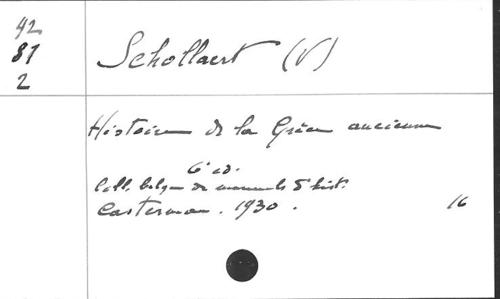 42
81
2
Schollaert (V)
Histoire de la Grèce ancienne
6e éd.
Coll. belge de manuels d'hist.
Casterman. 1930.
16